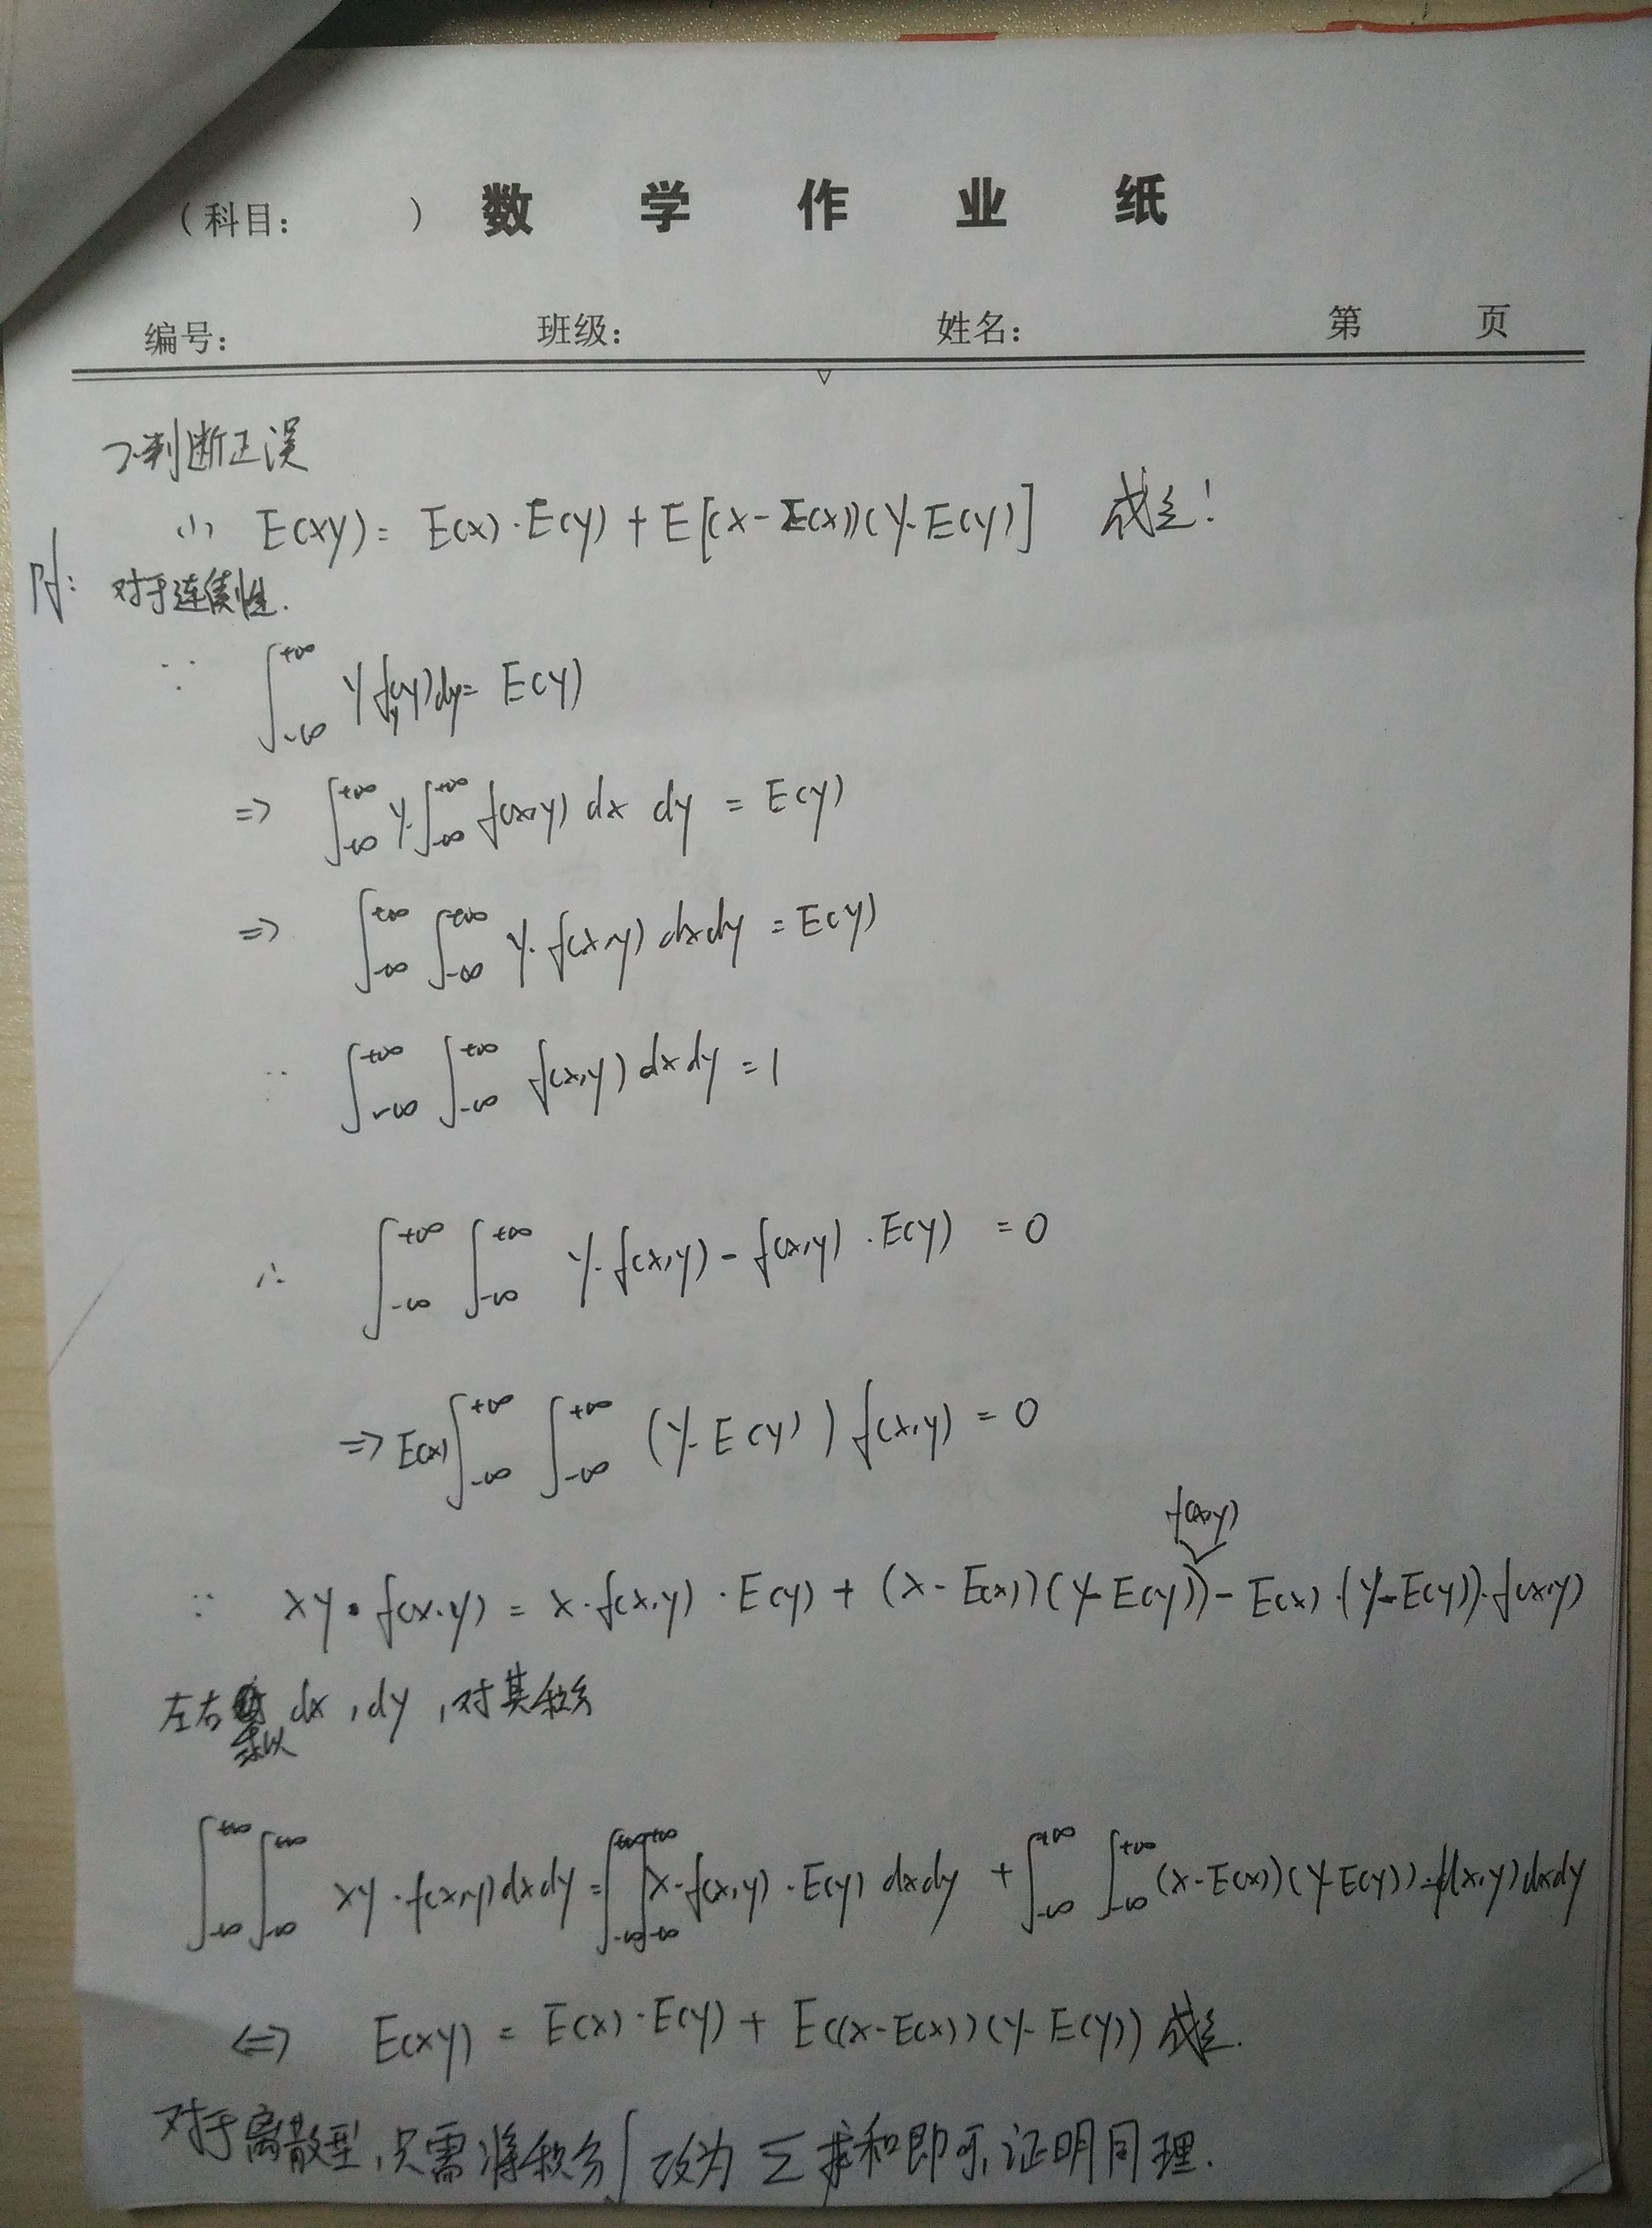 （科目： ） 数 学 作 业 纸
编号： 班级： 姓名： 第 页
2.判断正误
(1) E(XY) = E(X)·E(Y) + E[(X-E(X))(Y-E(Y)] 成立!
Pf: 对于连续性.
∵ ∫_{-∞}^{+∞} y f_y(y)dy = E(Y)
⇒ ∫_{-∞}^{+∞} y·∫_{-∞}^{+∞} f(x,y) dx dy = E(Y)
⇒ ∫_{-∞}^{+∞} ∫_{-∞}^{+∞} y·f(x,y) dxdy = E(Y)
∵ ∫_{-∞}^{+∞} ∫_{-∞}^{+∞} f(x,y) dxdy = 1
∴ ∫_{-∞}^{+∞} ∫_{-∞}^{+∞} y·f(x,y) - f(x,y)·E(Y) = 0
⇒ E(X) ∫_{-∞}^{+∞} ∫_{-∞}^{+∞} (y-E(Y)) f(x,y) = 0
f(x,y)
∵ xy·f(x,y) = x·f(x,y)·E(Y) + (x-E(X))(y-E(Y)) - E(X)·(y-E(Y))·f(x,y)
左右乘 dx,dy,对其积分
∫_{-∞}^{+∞} ∫_{-∞}^{+∞} xy·f(x,y)dxdy = ∫_{-∞}^{+∞} ∫_{-∞}^{+∞} x·f(x,y)·E(Y) dxdy + ∫_{-∞}^{+∞} ∫_{-∞}^{+∞} (x-E(X))(y-E(Y))·f(x,y)dxdy
⇔ E(XY) = E(X)·E(Y) + E((X-E(X))(Y-E(Y)) 成立.
对于离散型,只需将积分∫改为 Σ 求和即可,证明同理.